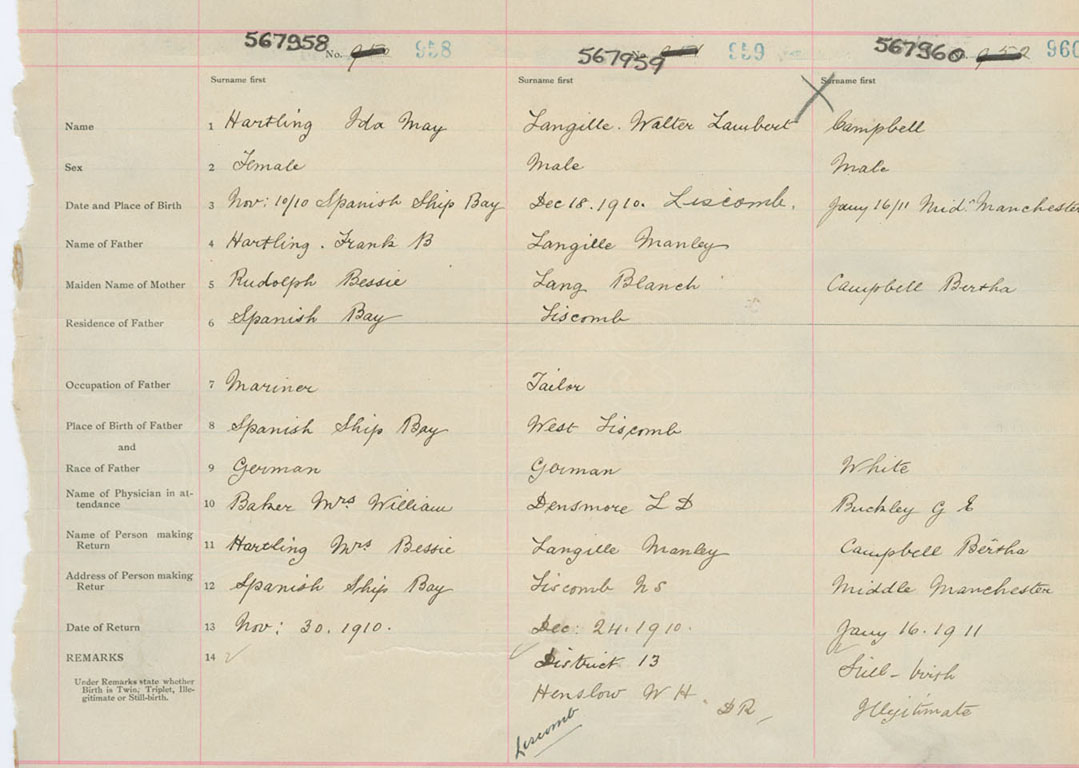 567958 No. 958 567959 No. 959 567960 960
Surname first Surname first Surname first
Name 1 Hartling Ida May Langille. Walter Lambert Campbell
Sex 2 Female Male Male
Date and Place of Birth 3 Nov: 10/10 Spanish Ship Bay Dec 18. 1910. Liscomb. Jany 16/11 Mid. Manchester
Name of Father 4 Hartling. Frank B Langille Manley
Maiden Name of Mother 5 Rudolph Bessie Lang Blanch Campbell Bertha
Residence of Father 6 Spanish Bay Liscomb
Occupation of Father 7 Mariner Tailor
Place of Birth of Father 8 Spanish Ship Bay West Liscomb
and
Race of Father 9 German German White
Name of Physician in at-
tendance 10 Baker Mrs. William Densmore L D Buckley G E
Name of Person making
Return 11 Hartling Mrs Bessie Langille Manley Campbell Bertha
Address of Person making
Retur 12 Spanish Ship Bay Liscomb N S Middle Manchester
Date of Return 13 Nov: 30. 1910. Dec: 24. 1910. Jany 16. 1911
REMARKS 14 District 13 Still-birth
Under Remarks state whether
Birth is Twin, Triplet, Ille-
gitimate or Still-birth.
Henslow W H. D R, Illegitimate
Liscomb